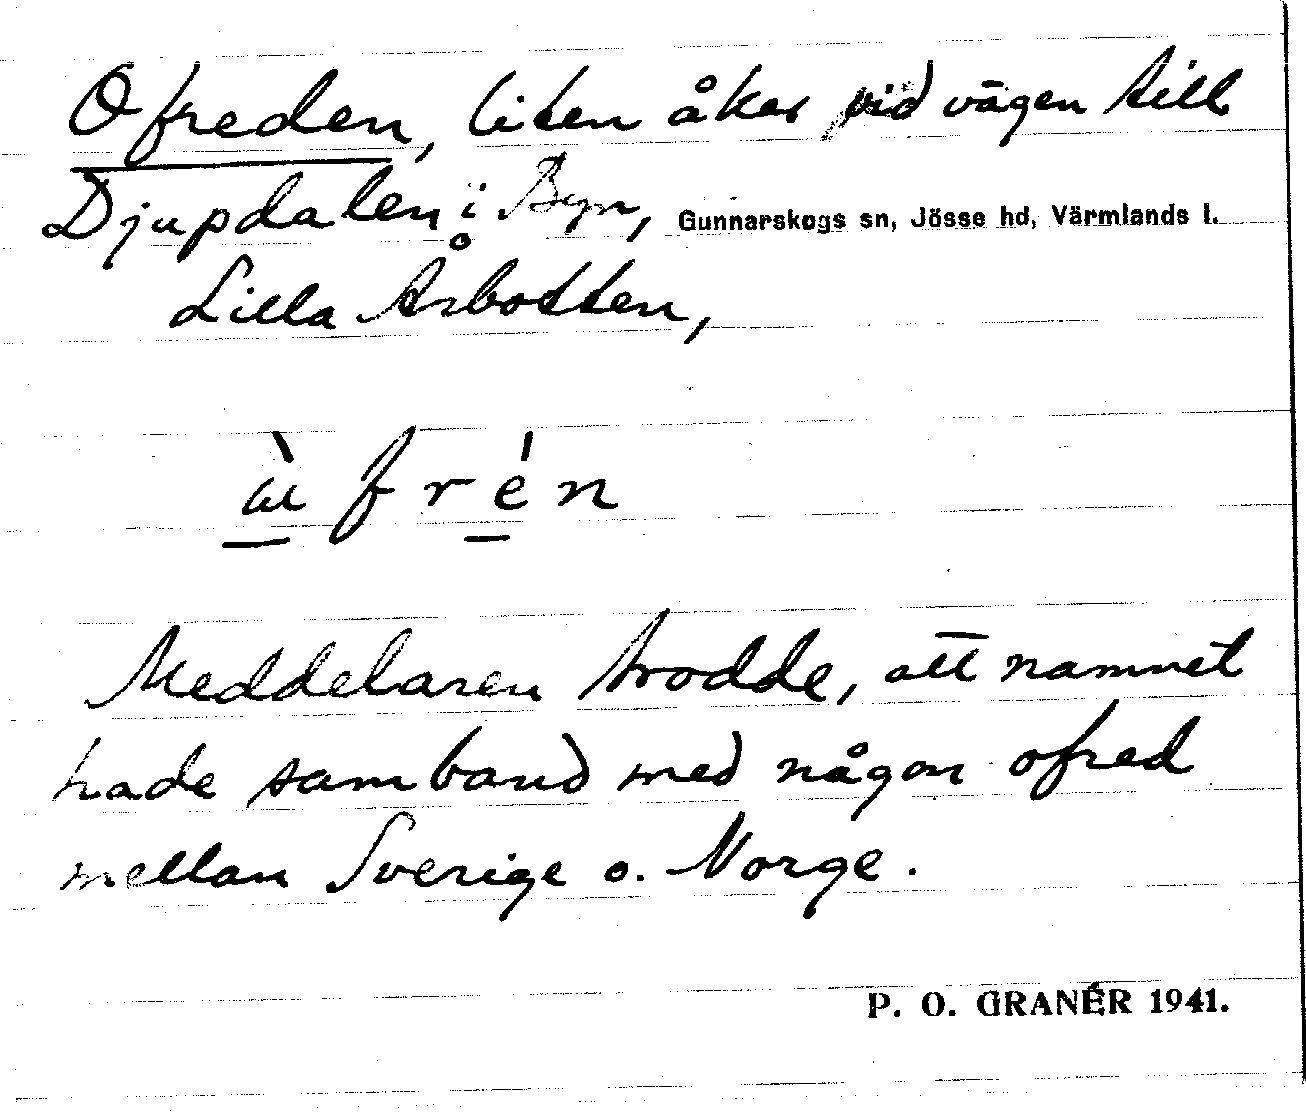 Ofreden, liten åker vid vägen till
Djupdalen i Byn, Gunnarskogs sn, Jösse hd, Värmlands l.
Lilla Årbotten,
ὼ f r é n
Meddelaren trodde, att namnet
hade samband med någon ofred
mellan Sverige o. Norge.
P. O. GRANÉR 1941.